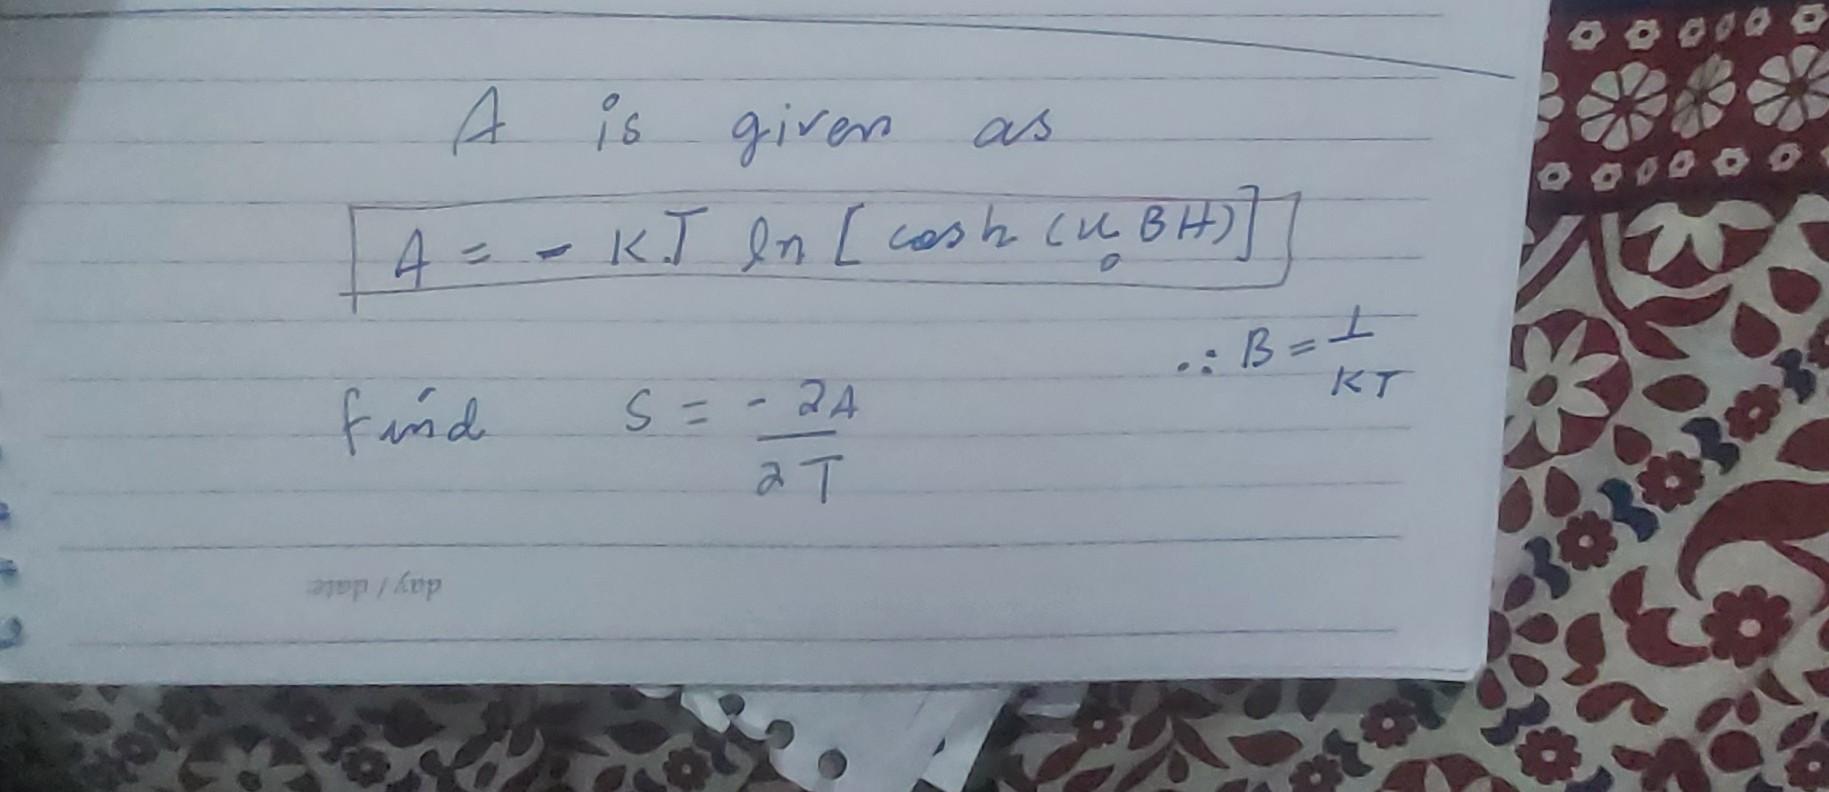 A is given as
A = - KT ln [ cosh (μ₀ B H)]
∵ B = 1/KT
find S = - ∂A/∂T
day / date